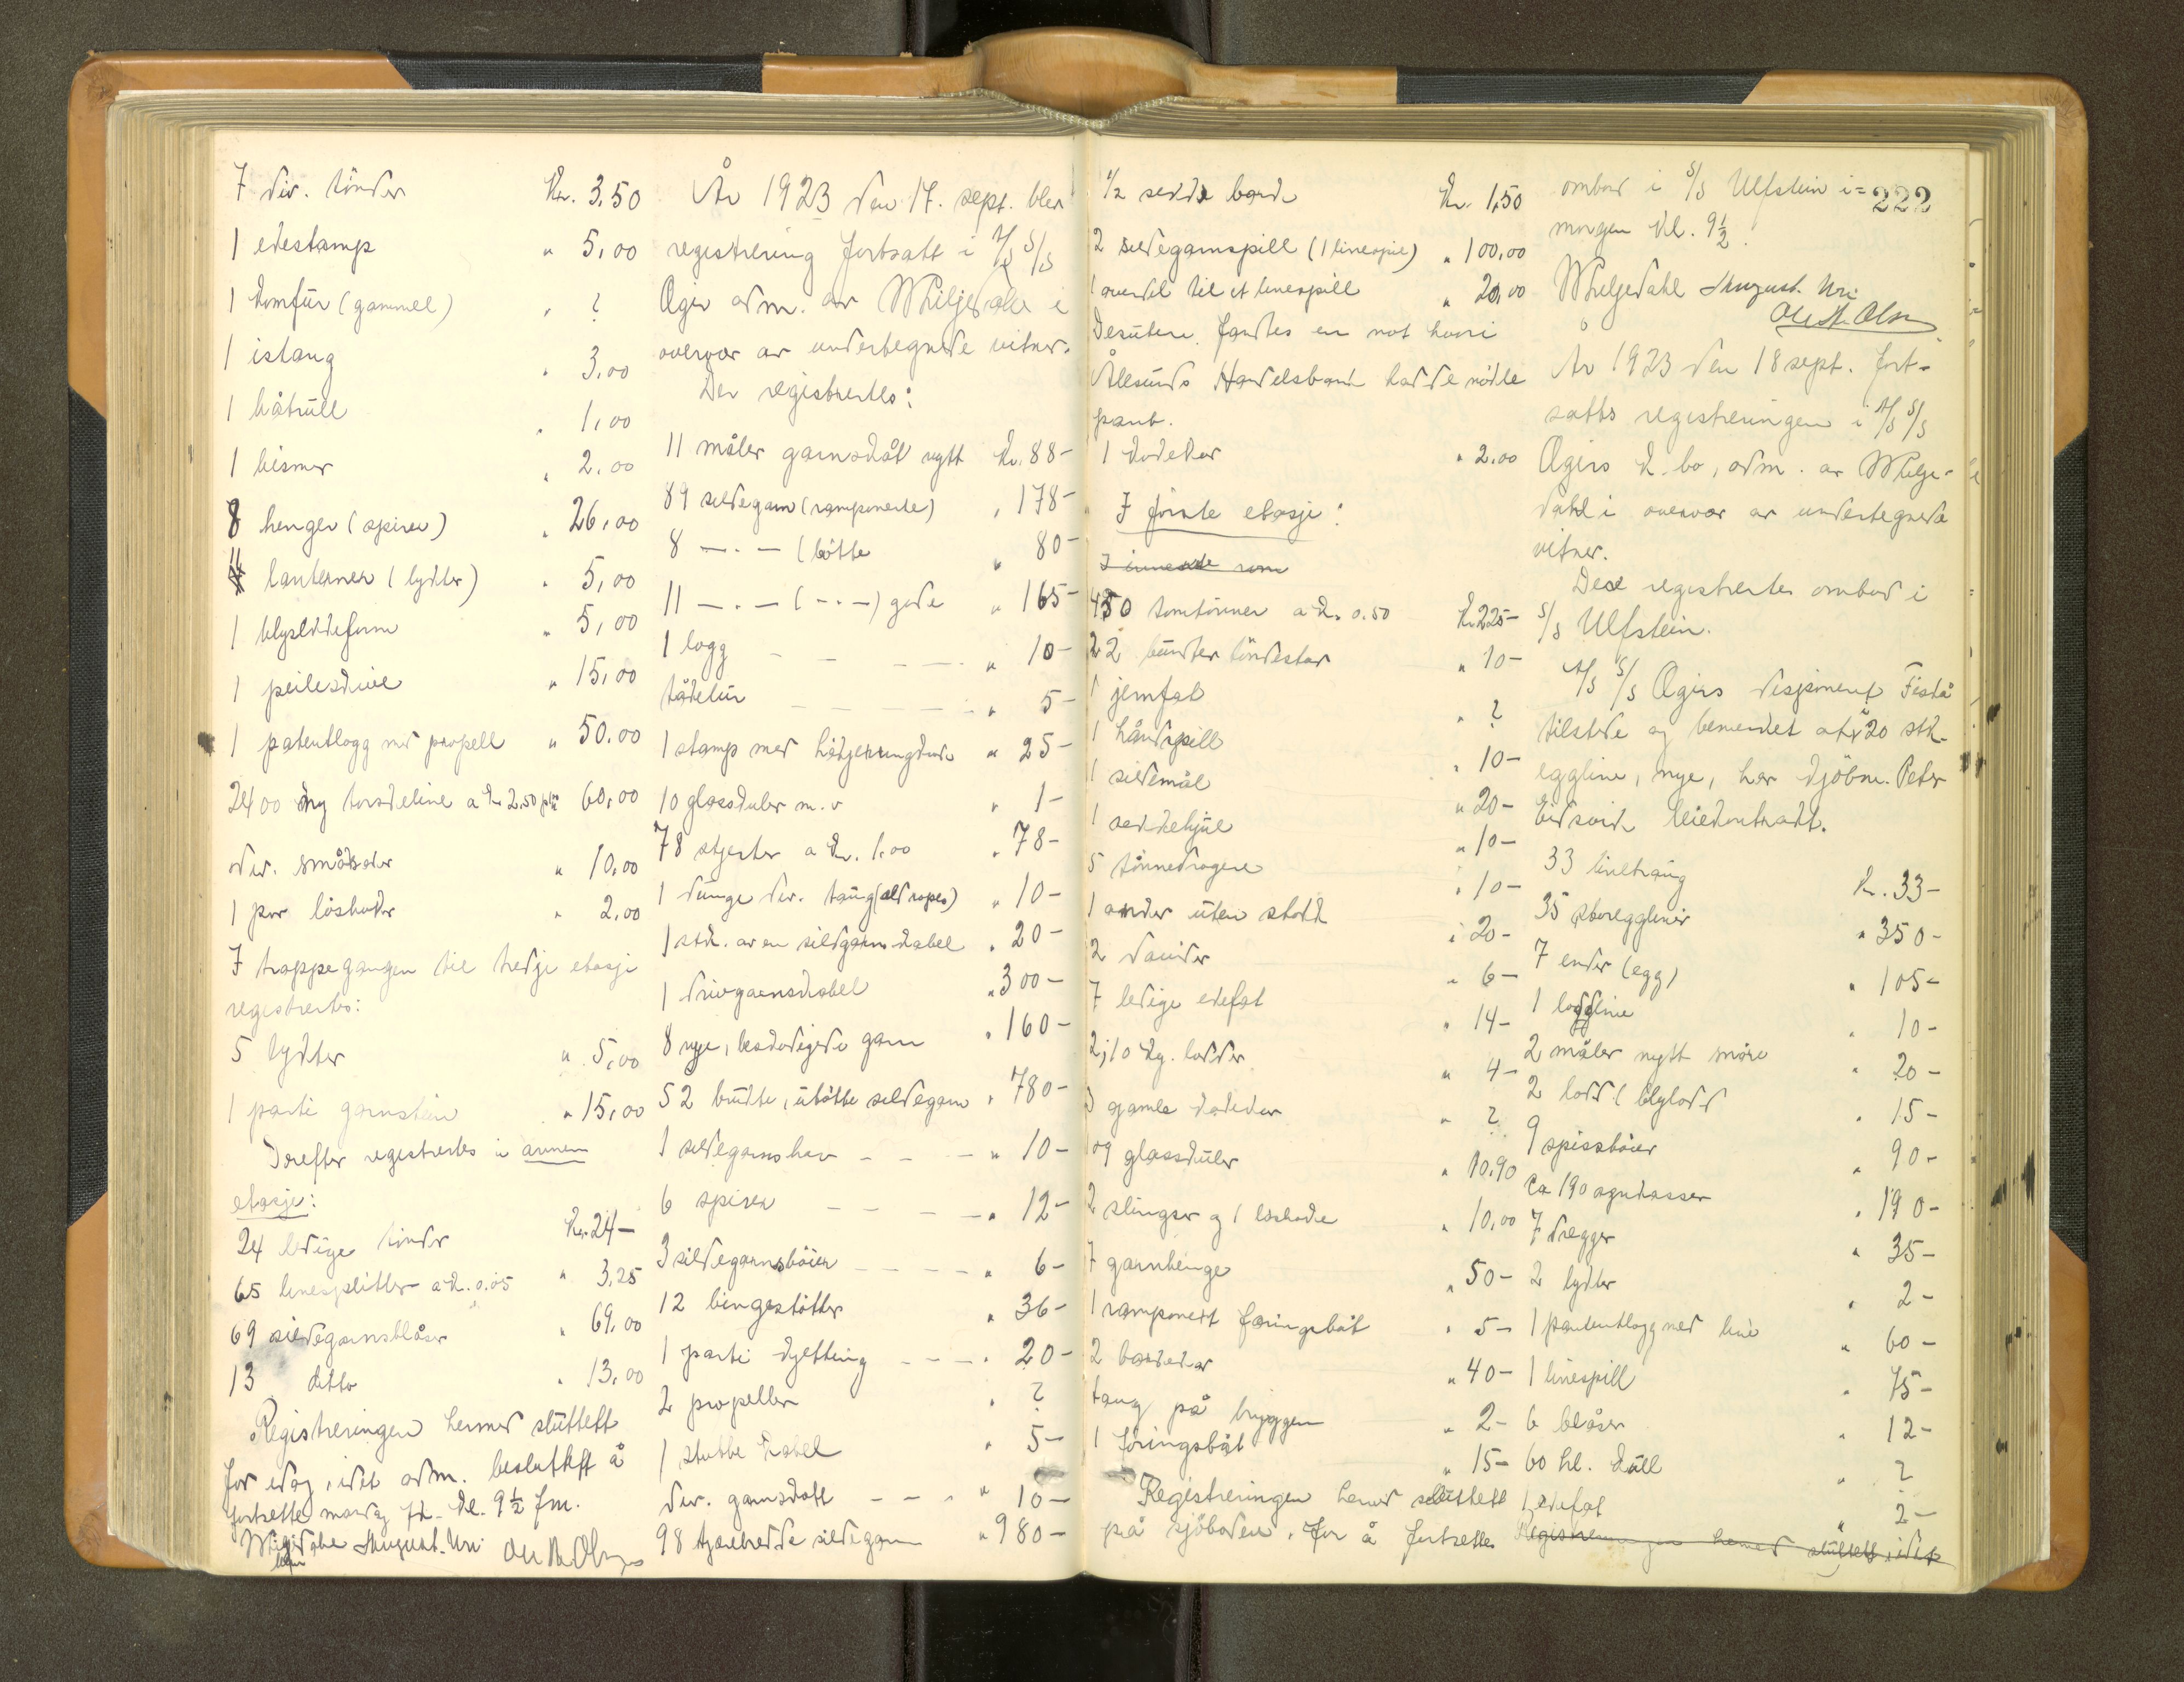 7 div. tönder Kr. 3,50
1 edestamp " 5,00
1 komfür (gammel) " ?
1 istang " 3,00
1 båtrull " 1,00
1 bismer " 2,00
8 henger (spirer) " 26,00
11 lanterner (lykter) " 5,00
1 blysokkeform " 5,00
1 peileskive " 15,00
1 patentlogg med propell " 50,00
2400 ny torskeline a kr. 2,50 60,00
div. småsaker " 10,00
1 par löskarder " 2,00
I trappegangen til tredje etasje
registrertes:
5 lykter " 5,00
1 parti garnstein " 15,00
Derefter registrertes i annen
etasje:
24 ledige tönder Kr. 24-
65 linesplitter a k. 0.05 " 3,25
69 sildegarnsblåser " 69,00
13 ditto " 13,00
Registreringen hermed sluttett
for idag, idet adm. besluttett å
fortsette mandag kl. 9½ fm.
August Uri
År 1923 den 17. sept. blev
registrering fortsatt i A/S S/S
Ægir adm. av W Liljedahl i
overvær av undertegnede vitner.
Der registrertes:
11 måler garnskåt nytt kr. 88-
89 sildegarn (ramponerte) " 178-
8 -.- (bötte " 80-
11 -.- (-.-) gode " 165-
1 logg " 10-
tåkelur " 5-
1 stamp med håkjerringkrok " 25-
10 glasskuler m.v " 1-
78 stjerter a kr. 1.00 " 78-
1 dunge div. taug (ald ropes) " 10-
1 stk. av en sildgarnskabel " 20-
1 drivgarnskabel " 300-
8 nye, beskadigede garn " 160-
52 brukte, ubötte sildegarn " 780-
1 sildegarnshav " 10-
6 spirer " 12-
3 sildegarnsböier " 6-
12 bingestötter " 36-
1 parti kjetting " 20-
2 propeller " ?
1 stubbe kabel " 5-
div. garnskott " 10-
98 tjærebredde sildegarn " 980-
1/2 sekk bark Kr. 1,50
2 sildegarnspill (1 linespil) " 100,00
1 overdel til et linespill " 20,00
Desuten fandtes en not hvori
Ålesunds Handelsbank hadde
pant.
1 dodekar " 2,00
I förste etasje:
450 tomtönner a kr. 0.50 Kr. 225-
22 bundter töndestav " 10-
1 jernfat " ?
1 håndspill " 10-
1 sildemål " 20-
1 rekkehjul " 10-
5 tönnedragere " 10-
1 anker uten stokk " 20-
2 davider " 6-
7 ledige edefat " 14-
2, 10 kg. lodder " 4-
3 gamle " ?
109 glasskuler " 10,90
2 slingser og 1 löskarde " 10,00
7 garnhenge " 50-
1 ramponert föringsbåt " 5-
2 barkekar " 40-
taug på bryggen " 2-
1 föringsbåt " 15-
Registreringen hermed sluttett
på sjöboden, for å fortsette
222
ombord i S/S Ulfstein i=
morgen kl. 9½.
W Liljedahl August Uri
År 1923 den 18 sept. fort-
satts registreringen i A/S S/S
Ægirs k. bo, adm. av W Lilje-
dahl i overvær av undertegnede
vitner.
Der registrertes ombord i
S/S Ulfstein.
A/S S/S Ægirs disponent Fiskå
tilstede og bemerket at 20 stk.
eggline, nye, har kjöbm. Peter
leiekontrakt.
33 linetraug Kr. 33-
35 storegglinir " 350-
7 ender (egg) " 105-
1 loddline " 10-
2 måler nytt snöre " 20-
2 lodd (blylodd " 15-
9 spissböier " 90-
Ca 190 agnkasser " 190-
7 dregger " 35-
2 lykter " 2-
1 pantentlogg med line " 60-
1 linespill " 75-
6 blåser " 12-
60 hl. kull " ?
1 edefat " 2-
Registreringen hermed sluttett, idet